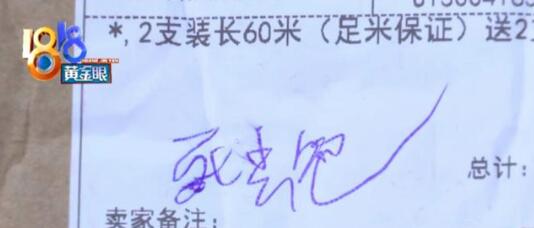 1818
黄金眼
*,2支装长60米（足米保证）送2
死去吧
总计：
卖家备注：